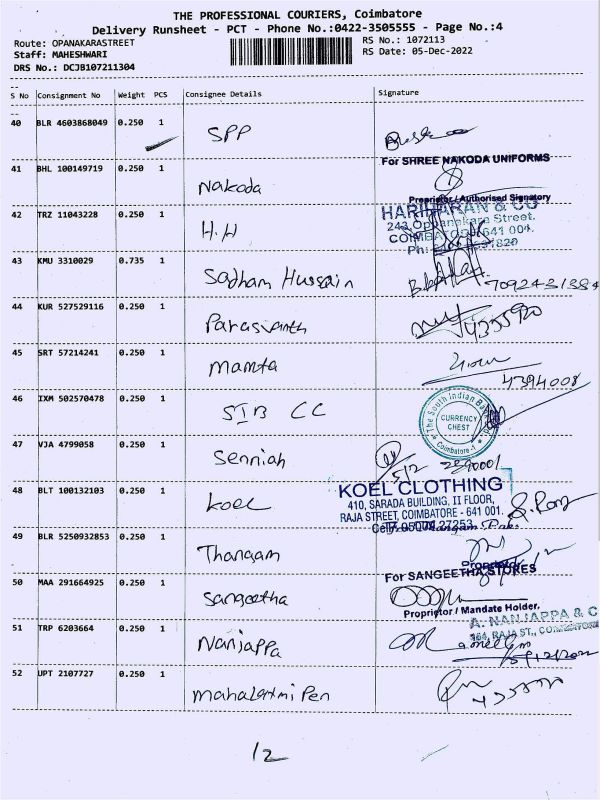 THE PROFESSIONAL COURIERS, Coimbatore
Delivery Runsheet - PCT - Phone No.:0422-3505555 - Page No.:4
Route: OPANAKARASTREET
RS No.: 1072113
Staff: MAHESHWARI
RS Date: 05-Dec-2022
DRS No.: DCJB107211304
S No Consignment No Weight PCS Consignee Details Signature
40 BLR 4603868049 0.250 1 SPP
For SHREE NAKODA UNIFORMS
41 BHL 100149719 0.250 1 Nakoda
Proprietor / Authorised Signatory
42 TRZ 11043228 0.250 1 H.H
HARIHARAN & CO
243, Oppanakara Street,
COIMBATORE 641 004.
43 KMU 3310029 0.735 1 Sadham Hussain
7092431384
44 KUR 527529116 0.250 1 Paraswanth
4355920
45 SRT 57214241 0.250 1 Mamta
4394008
46 IXM 502570478 0.250 1 SIB CC
The South Indian Bank
CURRENCY
CHEST
Coimbatore-1
47 VJA 4799058 0.250 1 Senniah
5/12 2390001
48 BLT 100132103 0.250 1 Koel
KOEL CLOTHING
410, SARADA BUILDING, II FLOOR,
RAJA STREET, COIMBATORE - 641 001.
49 BLR 5250932853 0.250 1 Thangam
Proprietor
For SANGEETHA STORES
50 MAA 291664925 0.250 1 Sangeetha
Proprietor / Mandate Holder.
51 TRP 6203664 0.250 1 Nanjappa
A. NANJAPPA & C
364, RAJA ST., COIMBATORE
5/12/2022
52 UPT 2107727 0.250 1 Mahalaxmi Pen
12